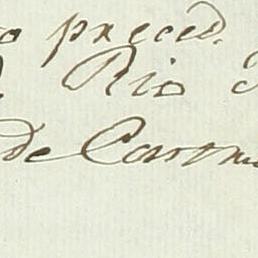 o preced.
Rio
de Carom